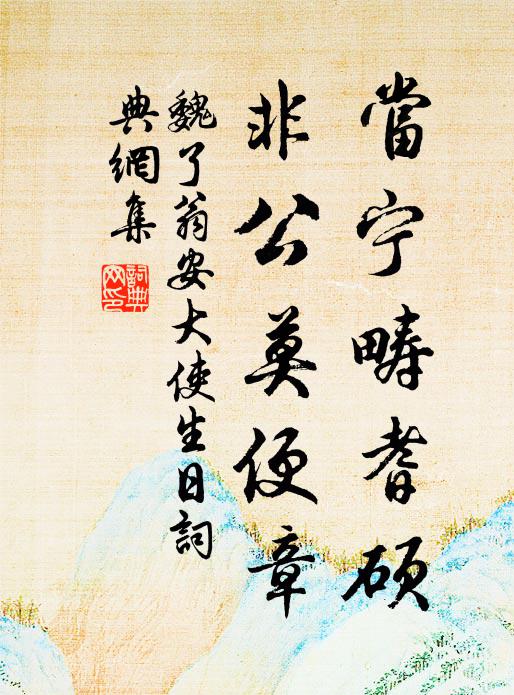 當宁疇耆硕
非公莫便章
魏了翁安大使生日詞
典網集
詞典網印